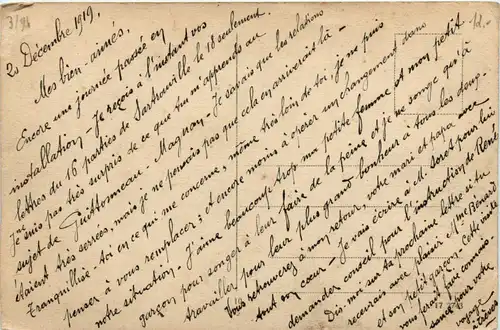 3/98
1d.-
20 Décembre 1919,
Mes bien-aimés,
Encore une journée passée en
installation. Je reçois à l'instant vos
lettres du 16 parties de Sartrouville le 18 seulement.
Je suis pas très surpris de ce que tu m'apprends au
sujet de Guittonneau Magnan. Je savais que les relations
étaient très serrées mais je ne pensais pas que cela en arriverait là -
Tranquillise-toi en ce qui me concerne, même très loin de toi, je ne puis
penser à vous remplacer ; et encore moins à opérer un changement dans
notre situation - J'aime beaucoup trop ma petite femme et mon petit
garçon pour songer à leur faire de la peine et je ne songe qu'à
travailler pour leur plus grand bonheur à tous les deux -
Vous retrouverez à mon retour, votre mari et papa avec
tout son cœur - Je vais écrire à M. pour lui
demander conseil pour l'instruction de René
Dis-moi sur ta prochaine lettre si tu
recevrais avec plaisir Mme
et son petit garçon. Cette